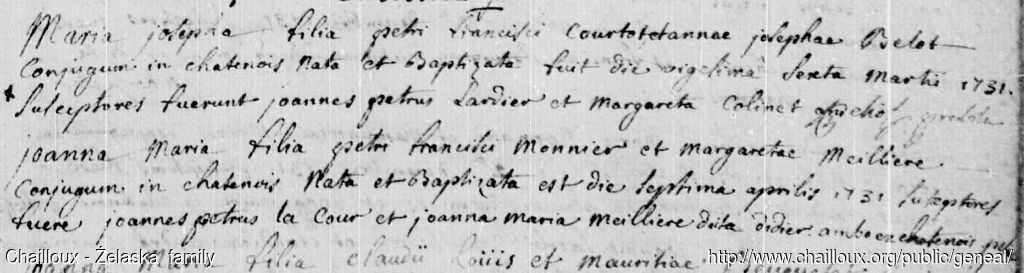 Maria josepha filia petri francisci Courtot et annae josephae Belot
Conjugum in chatenois Nata et Baptizata fuit die vigesima Sexta martii 1731.
Susceptores fuerunt joannes petrus Lardier et margareta Colinet
joanna maria filia petri francisci monnier et margaretae meilliere
Conjugum in chatenois Nata et Baptizata est die septima aprilis 1731 susceptores
fuere joannes petrus la Cour et joanna maria meilliere dita didier ambo ex chatenois
joanna maria filia claudii Loüis et mauritiae
Chailloux - Żelaska family
http://www.chailloux.org/public/geneal/